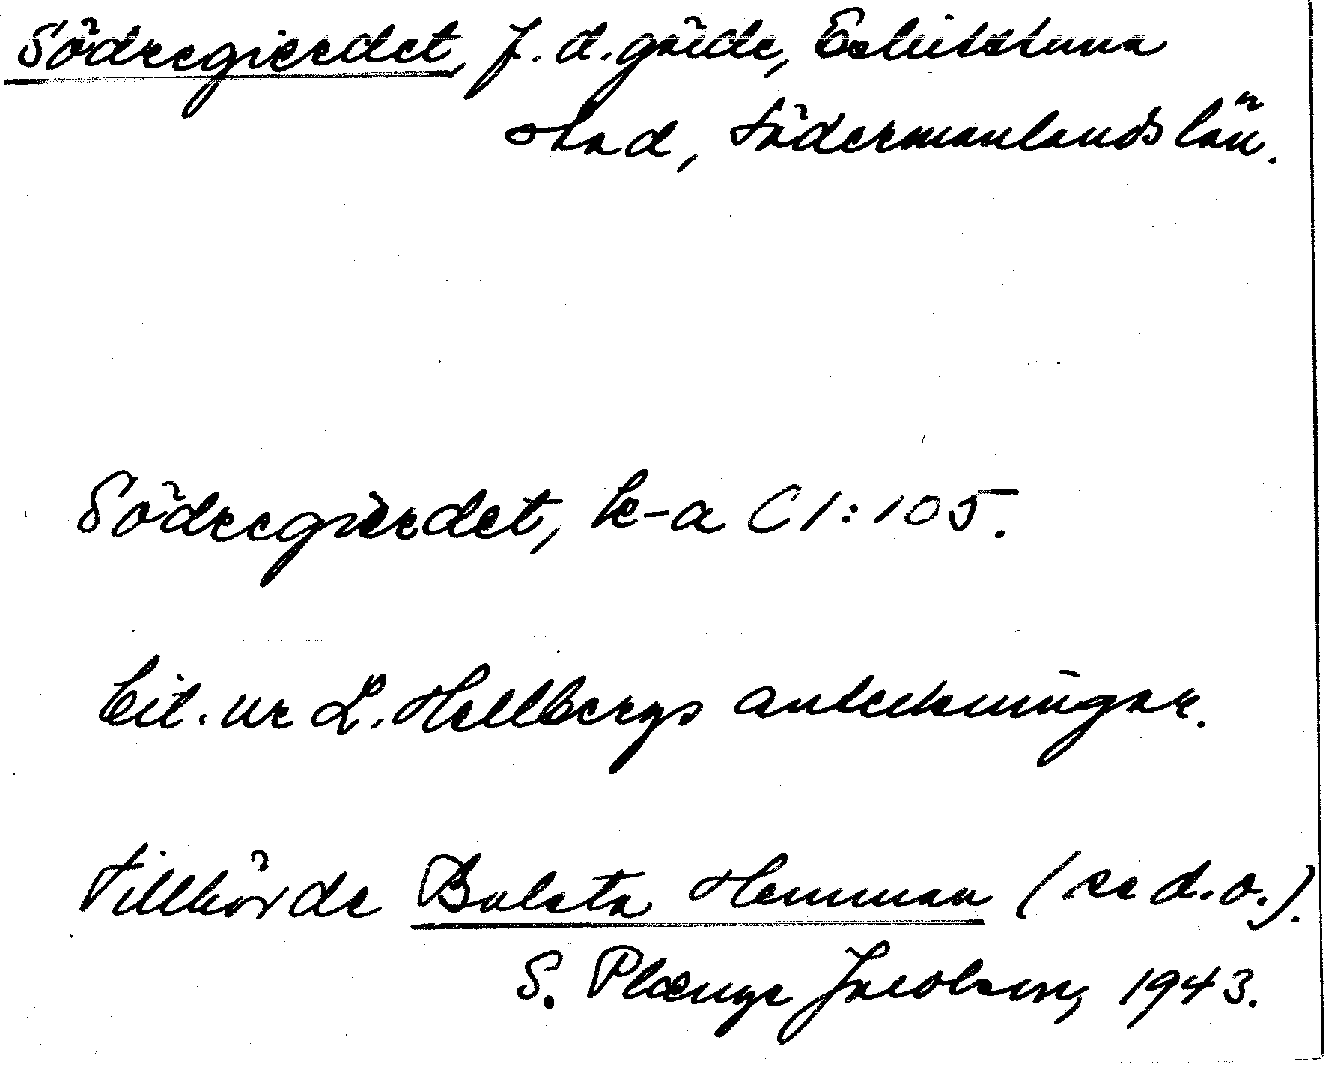 Södregierdet, f.d. gärde, Eskilstuna
stad, Södermanlands län.
Södregierdet, k-a C 1:105.
Cit. ur L. Hellbergs anteckningar.
Tillhörde Balsta Hemman (se d.o.).
S. Plænge Jacobson, 1943.